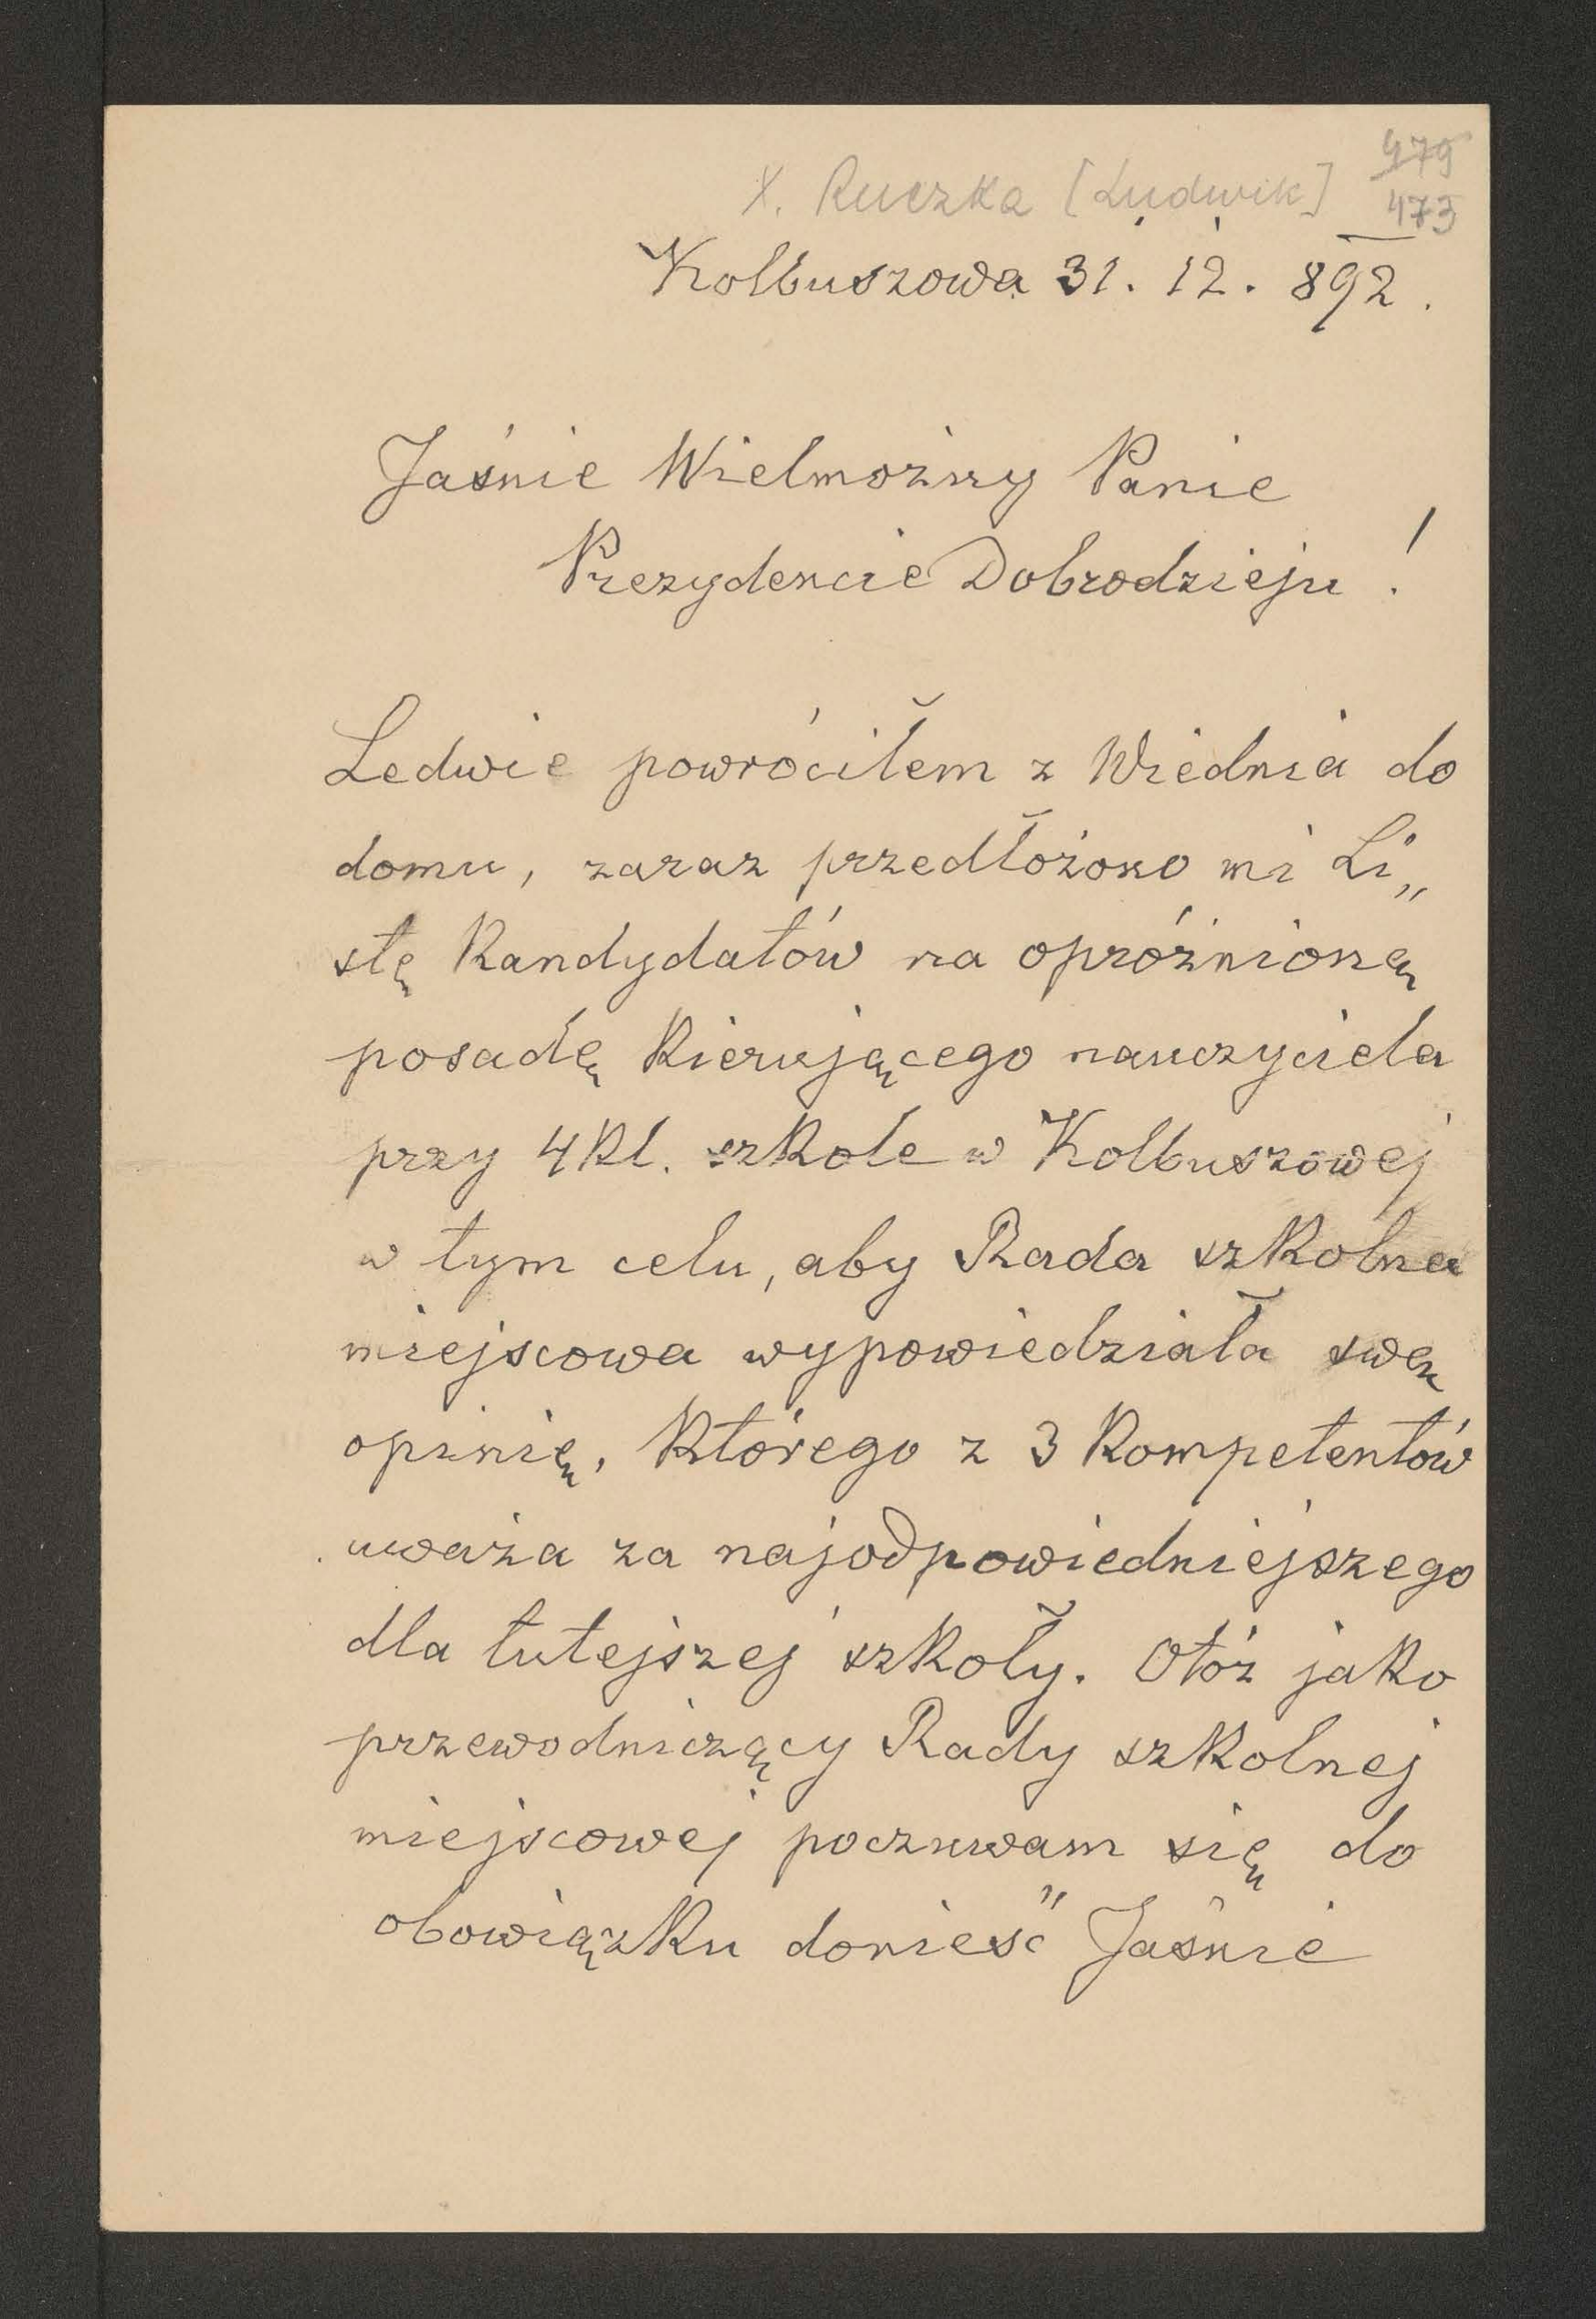 X. Ruczka [Ludwik]
479
473
Kolbuszowa 31. 12. 892.
Jaśnie Wielmożny Panie
Prezydencie Dobrodzieju!
Ledwie powróciłem z Wiednia do
domu, zaraz przedłożono mi Li„
stę Kandydatów na opróżnioną
posadę Kierującego nauczyciela
przy 4 Kl. szkole w Kolbuszowej
w tym celu, aby Rada szkolna
miejscowa wypowiedziała swą
opinię, Którego z 3 Kompetentów
uważa za najodpowiedniejszego
dla tutejszej szkoły. Otóż jako
przewodniczący Rady szkolnej
miejscowej poczuwam się do
obowiązku donieść Jaśnie